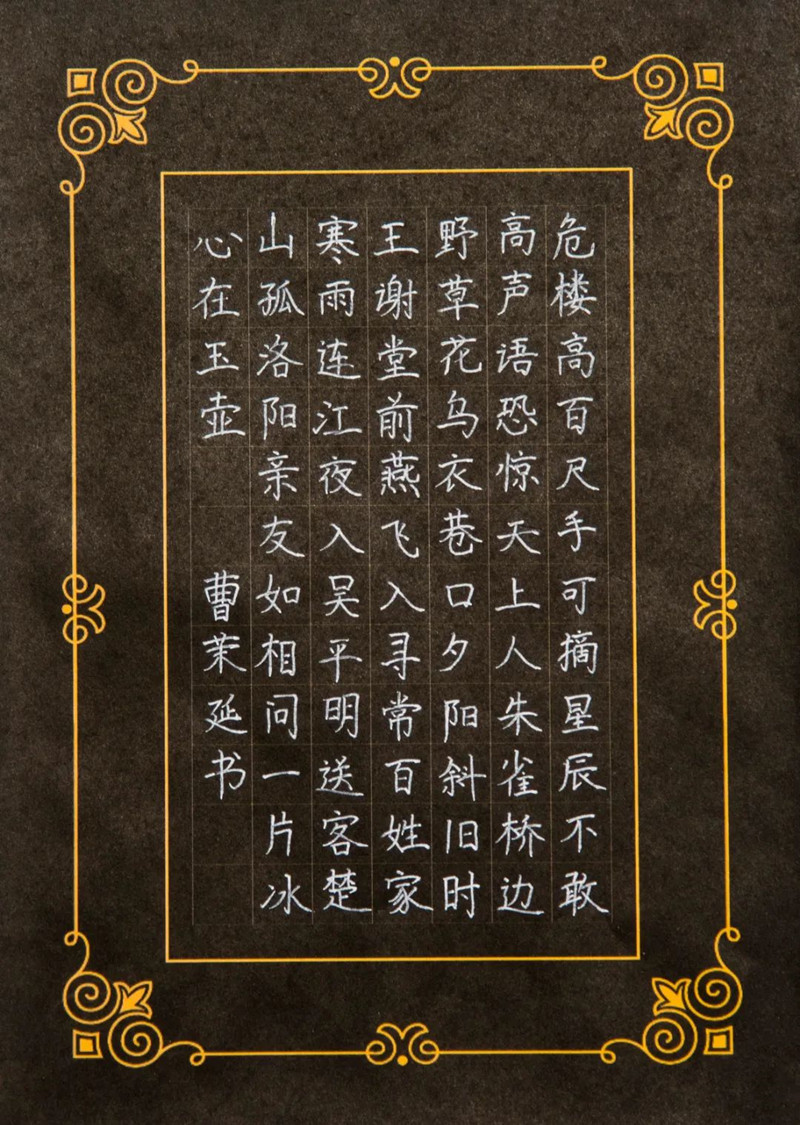 危楼高百尺手可摘星辰不敢
高声语恐惊天上人朱雀桥边
野草花乌衣巷口夕阳斜旧时
王谢堂前燕飞入寻常百姓家
寒雨连江夜入吴平明送客楚
山孤洛阳亲友如相问一片冰
心在玉壶 曹茉延书